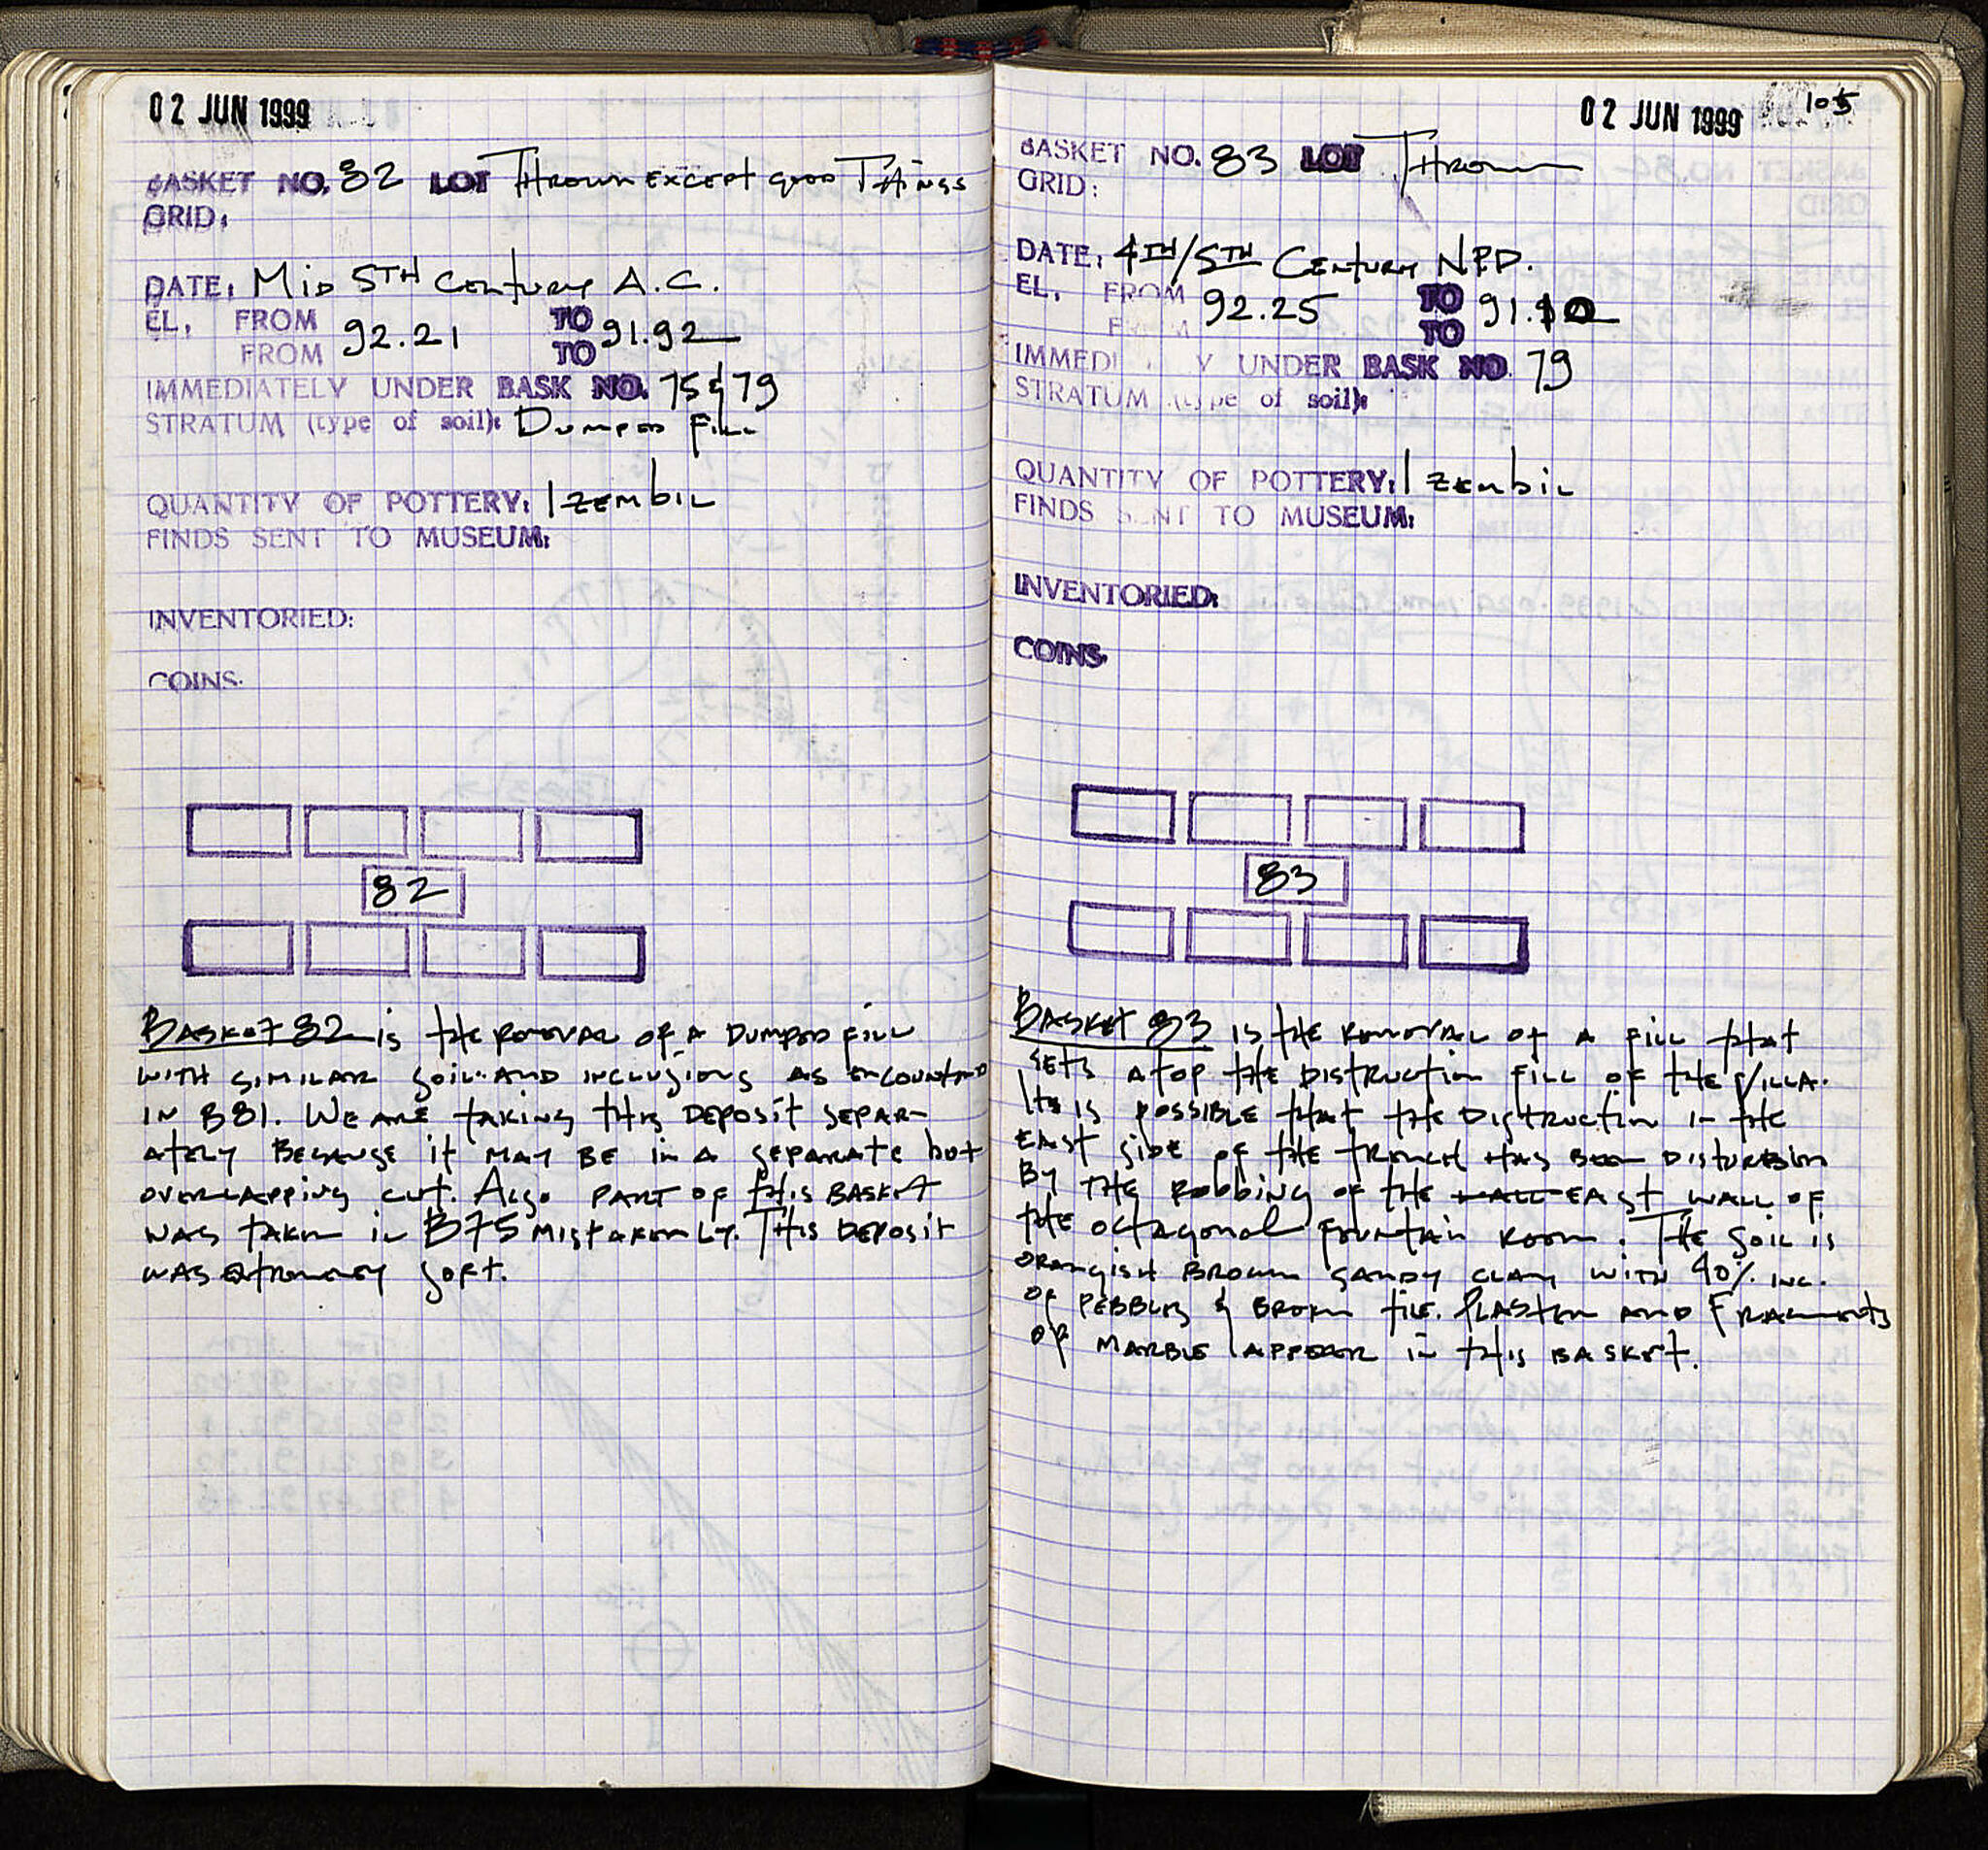 02 JUN 1999
BASKET NO. 82 LOT THROWN EXCEPT GOOD THINGS
GRID:
DATE: MID 5TH CENTURY A.C.
EL. FROM 92.21 TO 91.92
FROM TO
IMMEDIATELY UNDER BASK NO. 75 & 79
STRATUM (type of soil): DUMPED FILL
QUANTITY OF POTTERY: 1 ZEMBIL
FINDS SENT TO MUSEUM:
INVENTORIED:
COINS.
82
BASKET 82 IS THE REMOVAL OF A DUMPED FILL
WITH SIMILAR SOIL AND INCLUSIONS AS ENCOUNTERED
IN B81. WE ARE TAKING THIS DEPOSIT SEPAR-
ATELY BECAUSE IT MAY BE IN A SEPARATE BUT
OVERLAPPING CUT. ALSO PART OF THIS BASKET
WAS TAKEN IN B75 MISTAKENLY. THIS DEPOSIT
WAS EXTREMELY SOFT.
02 JUN 1999 105
BASKET NO. 83 LOT THROWN
GRID:
DATE: 4TH/5TH CENTURY NPD.
EL. FROM 92.25 TO 91.10
FROM TO
IMMEDI Y UNDER BASK NO. 79
STRATUM (type of soil):
QUANTITY OF POTTERY: 1 ZEMBIL
FINDS SENT TO MUSEUM:
INVENTORIED:
COINS.
83
BASKET 83 IS THE REMOVAL OF A FILL THAT
SETS ATOP THE DISTRUCTION FILL OF THE VILLA.
IT IS POSSIBLE THAT THE DISTRUCTION IN THE
EAST SIDE OF THE TRENCH HAS BEEN DISTURBED
BY THE ROBBING OF THE WALL EAST WALL OF
THE OCTAGONAL FOUNTAIN ROOM. THE SOIL IS
ORANGISH BROWN SANDY CLAY WITH 40% INC.
OF PEBBLES & BROKEN TILE. PLASTER AND FRAGMENTS
OF MARBLE APPEAR IN THIS BASKET.